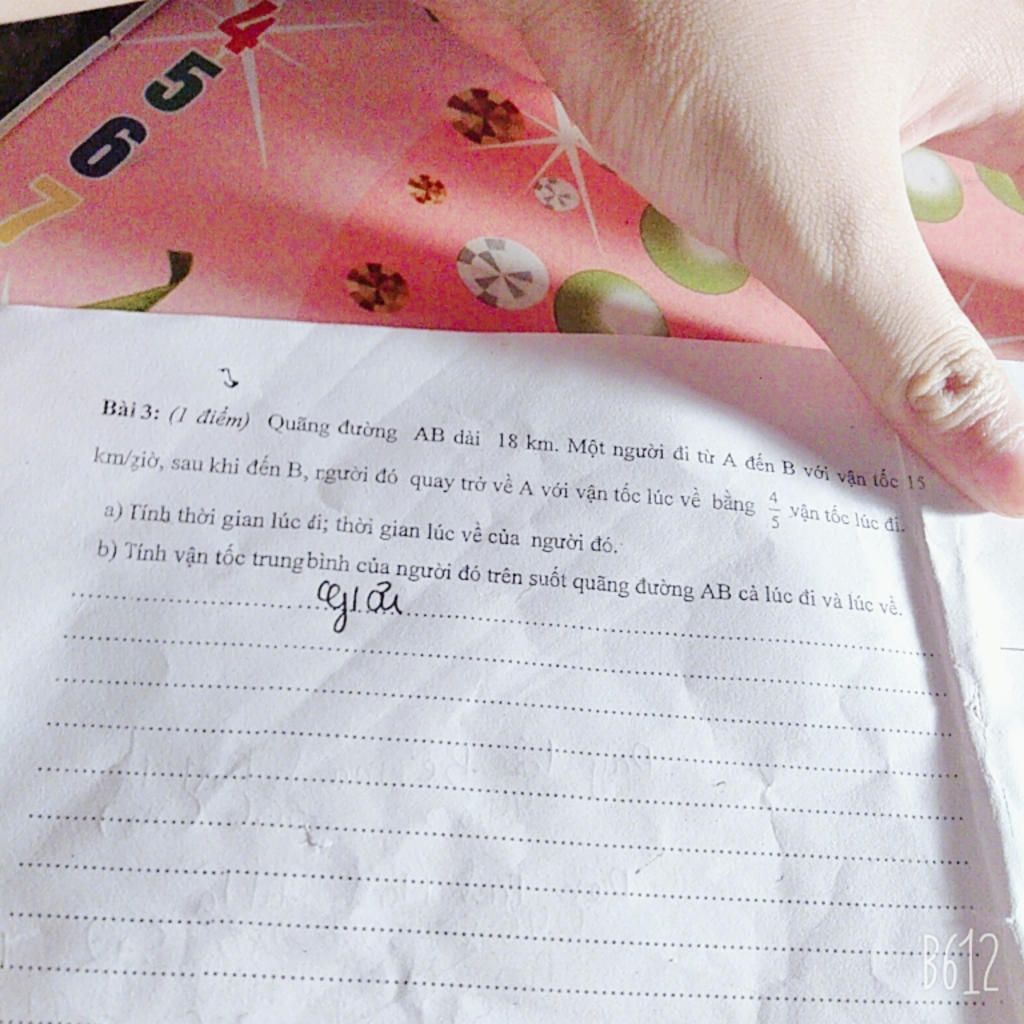 4
5
6
7
Bài 3: (1 điểm) Quãng đường AB dài 18 km. Một người đi từ A đến B với vận tốc 15
km/giờ, sau khi đến B, người đó quay trở về A với vận tốc lúc về bằng 4/5 vận tốc lúc đi.
a) Tính thời gian lúc đi; thời gian lúc về của người đó.
b) Tính vận tốc trung bình của người đó trên suốt quãng đường AB cả lúc đi và lúc về.
Giải
B612